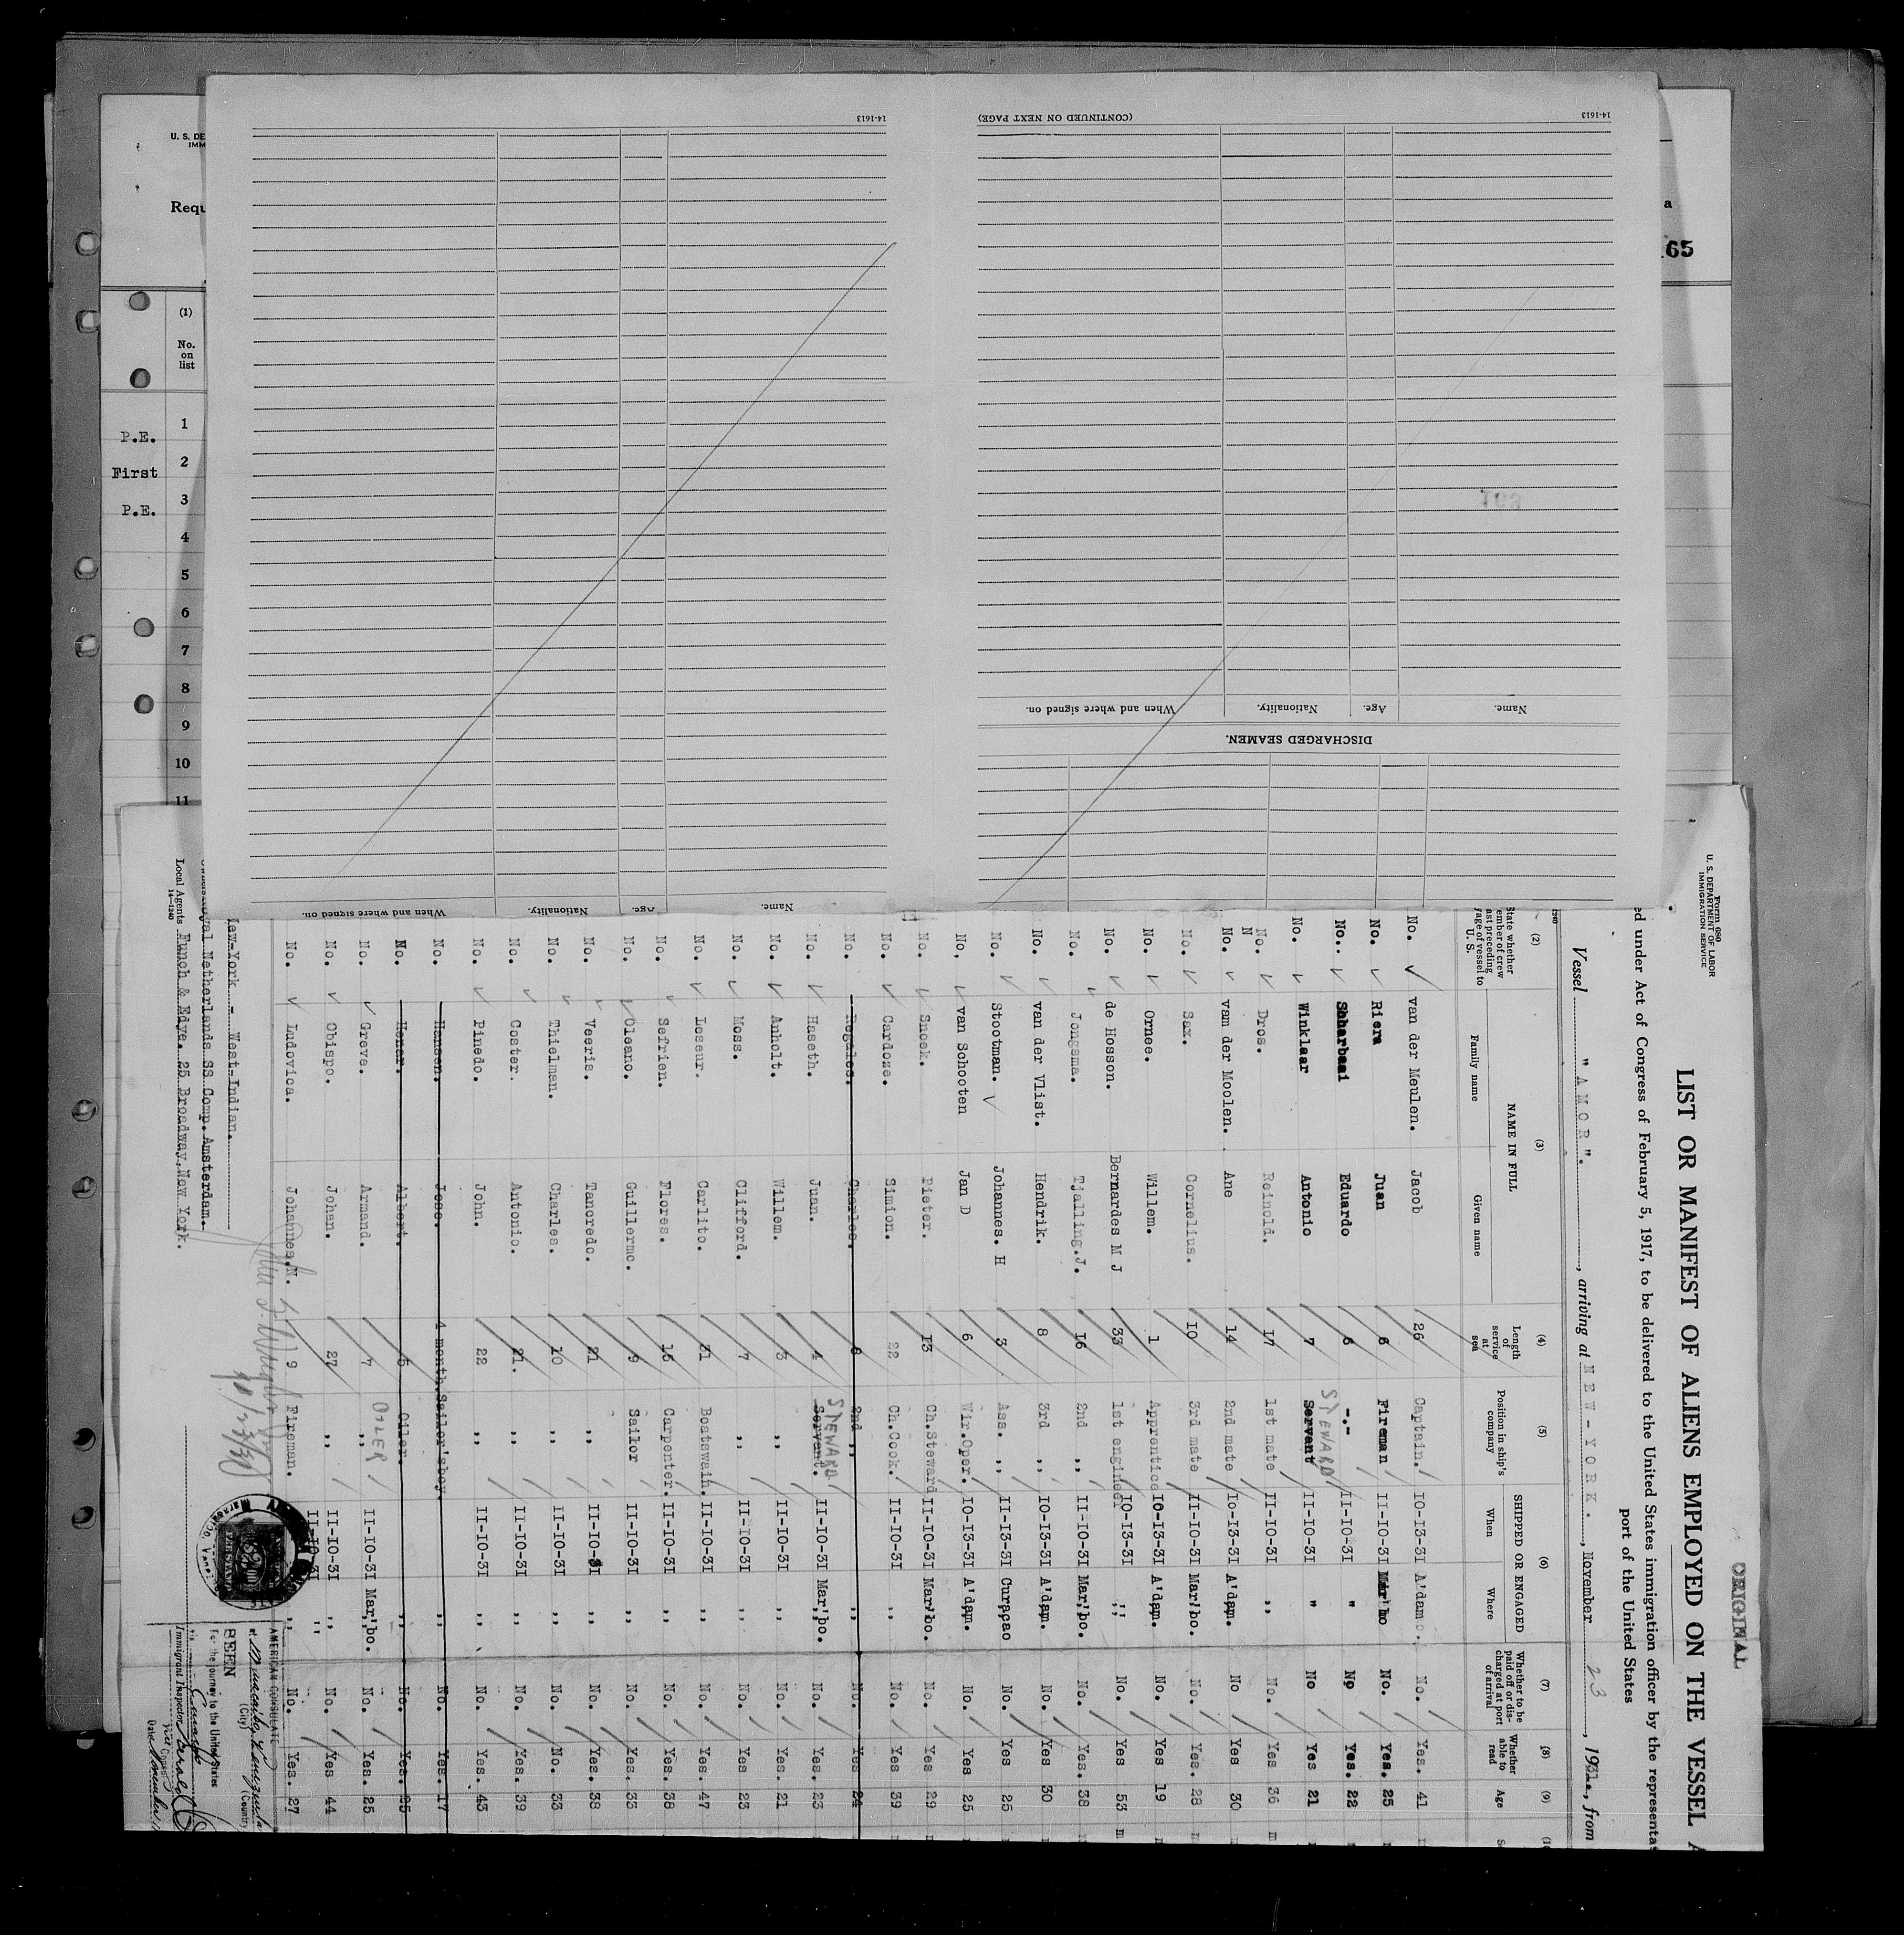 U. S. DE
IMM
Requ
(1)
No.
on
list
P.E.
First
P.E.
1
2
3
4
5
6
7
8
9
10
11
a
65
14-1613
(CONTINUED ON NEXT PAGE)
14-1613
DISCHARGED SEAMEN.
Name. Age. Nationality. When and where signed on.
Name. Age. Nationality. When and where signed on.
ORIGINAL
Form 680
U. S. DEPARTMENT OF LABOR
IMMIGRATION SERVICE
LIST OR MANIFEST OF ALIENS EMPLOYED ON THE VESSEL A
ed under Act of Congress of February 5, 1917, to be delivered to the United States immigration officer by the representa
port of the United States
Vessel "AMOR"., arriving at NEW-YORK., November 23, 1931., from
(2) (3) (4) (5) (6) (7) (8) (9)
State whether member of crew last preceding voyage of vessel to U. S.
NAME IN FULL
Family name Given name
Length of service at sea
Position in ship's company
SHIPPED OR ENGAGED
When Where
Whether to be paid off or discharged at port of arrival
Whether able to read
Age
No. van der Meulen. Jacob 26 Captain. IO-I3-3I A'dam. No. Yes. 41
No. Riera Juan 6 Fireman II-IO-3I Mar'bo No. Yes. 25
No.. Shharbaai Eduardo 6 -.- II-IO-3I " No Yes. 22
No. Winklaar Antonio 7 Servant STEWARD II-IO-3I " No Yes 21
No. Dros. Reinold. 17 1st mate II-IO-3I ,, No. Yes 36
No. vam der Moolen. Ane 14 2nd mate IO-I3-3I A'dam. No Yes 30
No. Sax. Cornelius. 10 3rd mate II-IO-3I Mar'bo. No. Yes. 28
No. Ornee. Willem. 1 Apprentice IO-I3-3I A'dam. No. Yes 19
No. de Hosson. Bernardes M J 33 1st engineer IO-I3-3I ,, No. Yes 53
No. Jongsma. Tjalling.J. 16 2nd ,, II-IO-3I Mar'bo. No. Yes. 38
No. van der Vlist. Hendrik. 8 3rd ,, IO-I3-3I A'dam. No. Yes 30
No. Stootman. Johannes. H 3 Ass. ,, II-I3-3I Curacao No. Yes 25
No. van Schooten Jan D 6 Wir.Oper. IO-I3-3I A'dam. No. Yes 25
No. Snoek. Pieter. 13 Ch.Steward II-IO-3I Mar'bo. No. Yes 29
No. Cardoze. Simion. 22 Ch.Cook. II-IO-3I ,, No. Yes 39
No. Regales. Charles. 8 2nd ,, ,, No. Yes 24
No. Haseth. Juan. 4 Servant. STEWARD II-IO-3I Mar'bo. No. Yes. 23
No. Anholt. Willem. 3 ,, II-IO-3I ,, No. Yes. 21
No. Moss. Clifford. 7 ,, II-IO-3I ,, No. Yes 23
No. Leseur. Carlito. 21 Boatswain. II-IO-3I ,, No. Yes. 47
No. Sefrien. Flores. 15 Carpenter. II-IO-3I ,, No. Yes. 38
No. Oleano. Guillermo. 9 Sailor II-IO-3I ,, No. Yes. 33
No. Veeris. Tancredo. 21 ,, II-IO-3I ,, No. Yes. 38
No. Thielman. Charles. 10 ,, II-IO-3I ,, No. No. 33
No. Coster. Antonio. 21. ,, II-IO-3I ,, No. Yes. 39
No. Pinedo. John. 22 ,, II-IO-3I ,, No. Yes. 43
No. Hansen. Jose. 4 month. Sailor'sboy. ,, No. Yes. 17
No. Hener. Albert. 5 Oiler. ,, No. Yes. 25
No. Greve. Armand. 7 ,, OILER II-IO-3I Mar'bo. No. Yes. 25
No. Obispo. Johan. 27 ,, II-IO-3I ,, No. Yes 44
No. Ludovica. Johannes.N. 9 Fireman. II-IO-3I ,, No. Yes. 27
New-York - West-Indian.
Royal Netherlands SS Comp. Amsterdam.
Local Agents Funch & Edye. 25 Broadway. New York.
14-1240
AMERICAN CONSULATE
at Maracaibo, Venezuela
(City) (Country
SEEN
For the journey to the United States
via Curaçao
Immigrant Inspector
Vice Consul
Date November